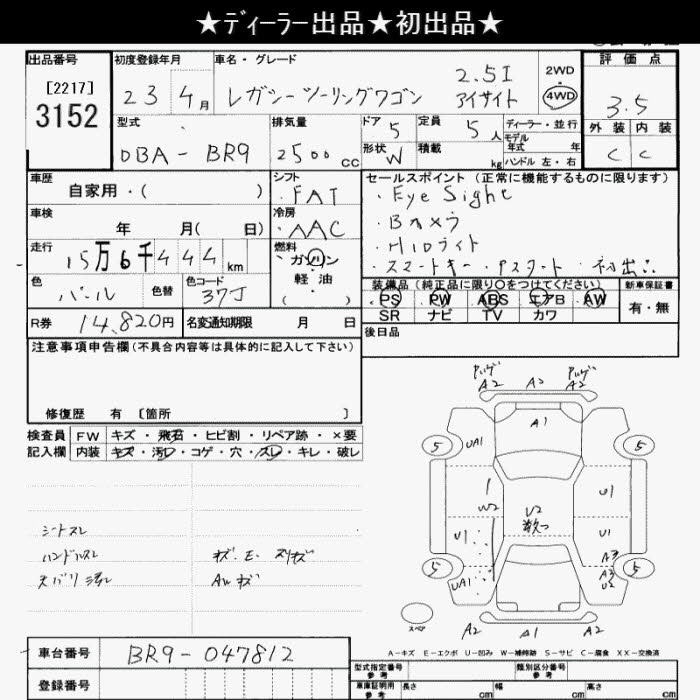 ★ディーラー出品★初出品★
出品番号
[2217]
3152
初度登録年月
23 4月
車名・グレード
レガシーツーリングワゴン
2.5I
アイサイト
2WD
・
4WD
評価点
3.5
外装 内装
C C
型式
DBA-BR9
排気量
2500 cc
ドア 5
定員 5人
形状 W
積載 kg
ディーラー・並行
モデル
年式 年
ハンドル 左・右
車歴
自家用・( )
シフト
FAT
車検
年 月( 日)
冷房
AAC
走行
15万6千444km
燃料
ガソリン
軽油
( )
色
パール
色替
色コード
37J
R券
14,820円
名変通知期限 月 日
セールスポイント (正常に機能するものに限ります)
・Eye Sight
・Bカメラ
・HIDライト
・スマートキー・Pスタート・初出品
装備品(純正品に限り○をつけてください)
PS PW ABS エアB AW
SR ナビ TV カワ
新車保証書
有・無
後日品
注意事項申告欄(不具合内容等は具体的に記入して下さい)
修復歴 有 〔箇所 〕
検査員
記入欄
FW キズ・飛石・ヒビ割・リペア跡・×要
内装 キズ・汚レ・コゲ・穴・スレ・キレ・破レ
シートスレ
ハンドルスレ
キズ.E.スリキズ
AWキズ
A2 A2 A2
A1
5 UA1 5
W2 U2 U1
数つ
U1 U1
A3
5 UA1 A2 5
U2
スペア
A2 A1 A2
A-キズ E-エクボ U-凹み W-補修跡 S-サビ C-腐食 XX-交換済
車台番号
BR9-047812
登録番号
型式指定番号
参考
類別区分番号
参考
車庫証明用
参考
長さ cm 幅 cm 高さ cm